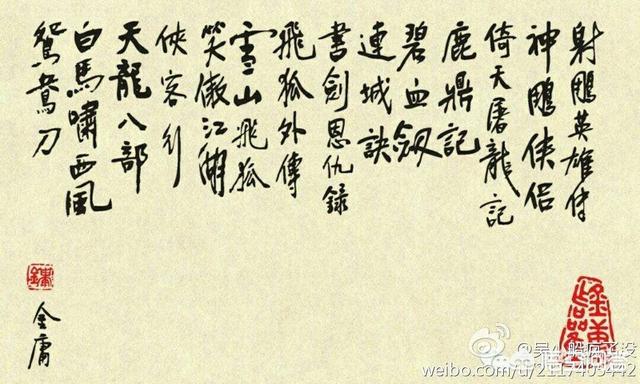 射鵰英雄傳
神鵰俠侶
倚天屠龍記
鹿鼎記
碧血劍
連城訣
書劍恩仇錄
飛狐外傳
雪山飛狐
笑傲江湖
俠客行
天龍八部
白馬嘯西風
鴛鴦刀
金庸
weibo.com/u/2117403442